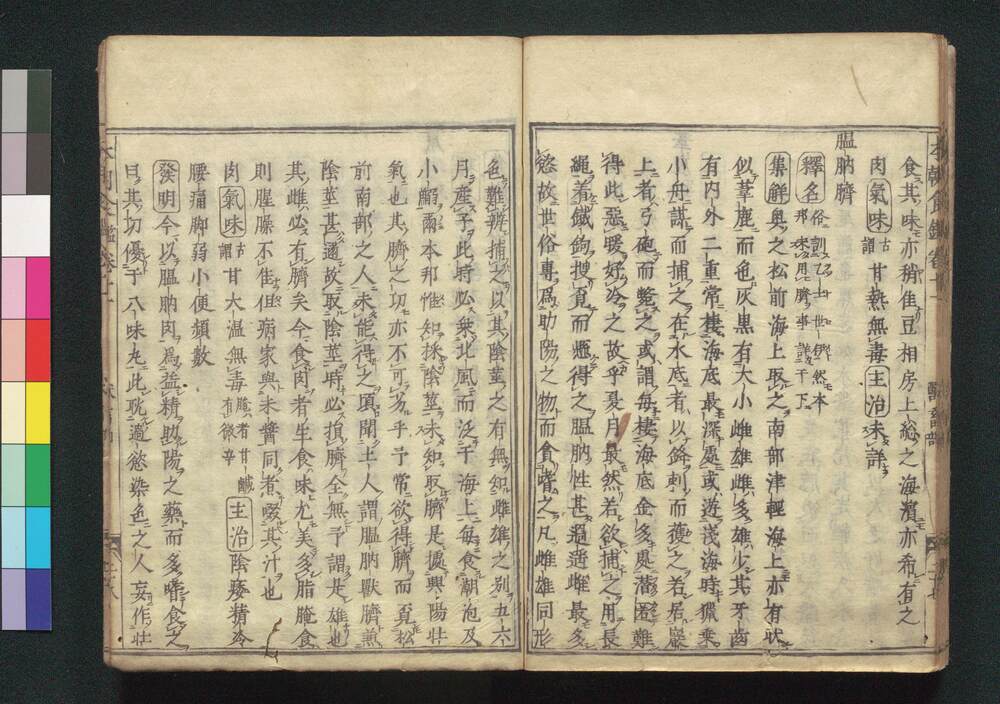 食其味亦稍佳豆相房上総之海濱亦希有之
肉氣味甘熱無毒主治未詳
膃肭臍
釋名俗訓
集解奥之松前海上取之南部津輕海上亦有狀
似葦鹿而色灰黒有大小雌雄雌多雄少其牙齒
有内外二重常棲海底最深處或遊淺海時獵乗
小舟謀而捕之在水底者以鋒刺而獲之若居巖
上者弓砲而斃之或謂毎棲海底金多處潜匿難
得此惡暖好冷之故乎夏月最然若欲捕之用長
繩着鐵鉤搜覓而得之膃肭性甚過遥雌最多
慾故世俗專爲助陽之物而貪嗜之凡雌雄同形
色難辨捕之以其陰莖之有無知雌雄之別五六
月産子此時必乗北風而泛于海上毎食潮泡及
小爾本邦惟知採陰莖未知取臍是据興陽壮
氣也其臍之功亦不可劣乎予常欲得臍而覓松
前南部之人未能得之頃聞土人謂膃肭獸臍煎
陰莖甚邇故取陰莖時必損臍全無予謂是雄也
其雌必有臍矣今食肉者生食味尤美多脂腌食
則腥臊不佳但病家與未醬同煮啜其汁也
肉氣味甘大温無毒腌者甘鹹有微辛主治陰痿精冷
腰痛脚弱小便頻數
發明今以膃肭肉爲益精助陽之藥而多嗜食之
曰其功優于八味丸此耽過慾染色之人妄作壮